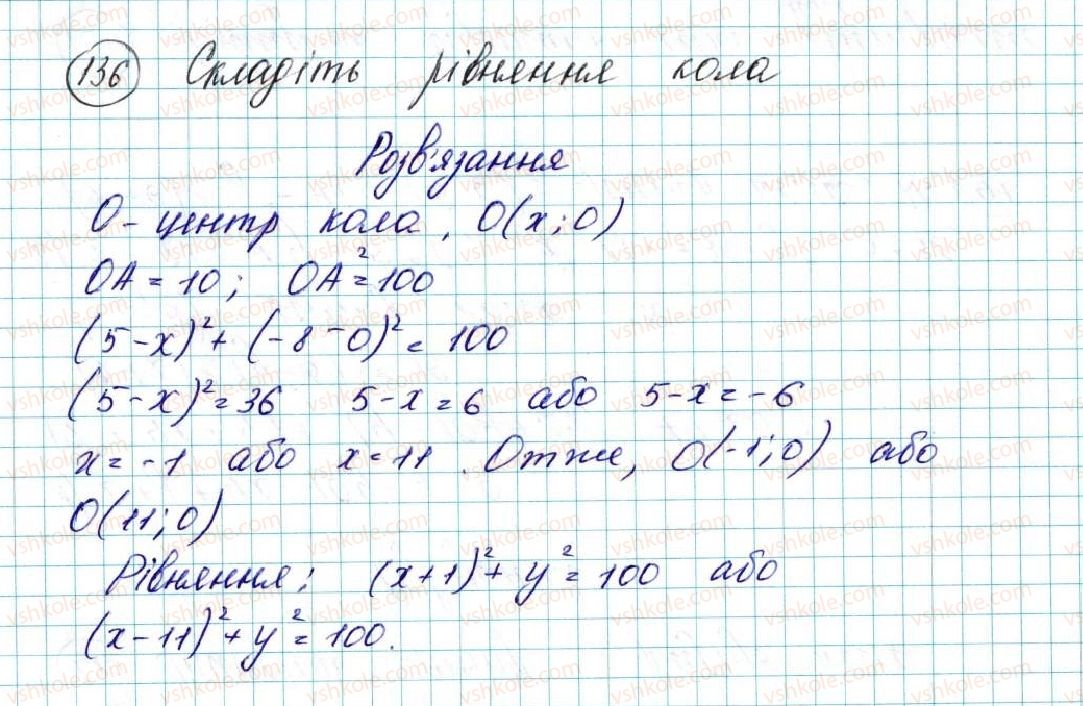 136 Складіть рівняння кола
Розв'язання
O - центр кола, O(x; 0)
OA = 10; OA² = 100
(5 - x)² + (-8 - 0)² = 100
(5 - x)² = 36 5 - x = 6 або 5 - x = -6
x = -1 або x = 11. Отже, O(-1; 0) або
O(11; 0)
Рівняння: (x + 1)² + y² = 100 або
(x - 11)² + y² = 100.